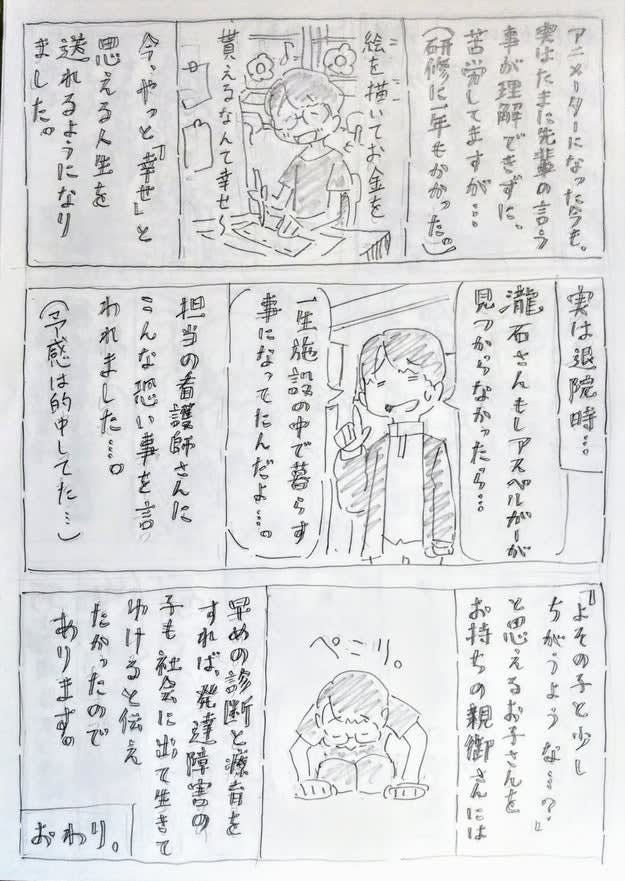 アニメーターになった今も。
実はたまに先輩の言う
事が理解できずに。
苦労してますが…
(研修に一年もかかった。)
絵を描いてお金を
貰えるなんて幸せ〜
♪
今、やっと「幸せ」と
思える人生を
送れるようになり
ました。
実は退院時…
瀧石さんもしアスペルガーが
見つからなかったら…
一生施設の中で暮らす
事になってたんだよ…。
担当の看護師さんに
こんな恐い事を言
われました…。
(予感は的中してた…)
『よその子と少し
ちがうような…?』
と思えるお子さんを
お持ちの親御さんには
ペこり。
早めの診断と療育を
すれば、発達障害の
子も社会に出て生きて
ゆけると伝え
たかったので
あります。
おわり。